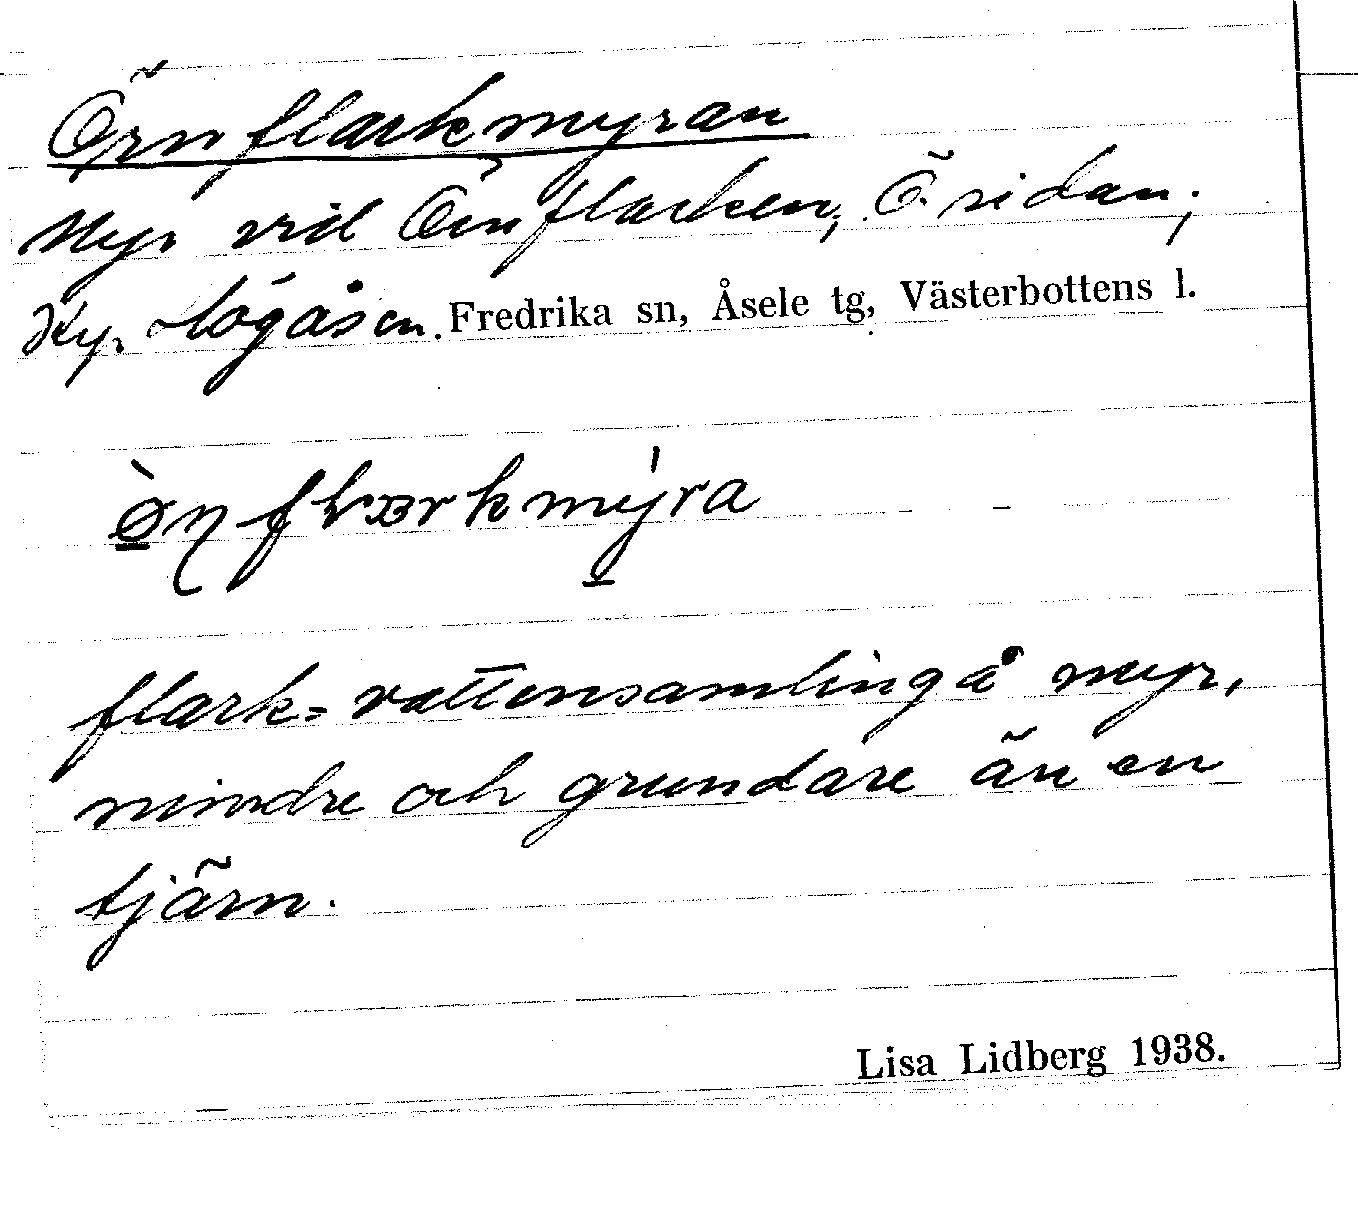 Örnflarkmyran
Myr vid Örnflarken, Ö. sidan,
Ky. Högåsen. Fredrika sn, Åsele tg, Västerbottens l.
flark = vattensamling å myr,
mindre och grundare än en
tjärn.
Lisa Lidberg 1938.